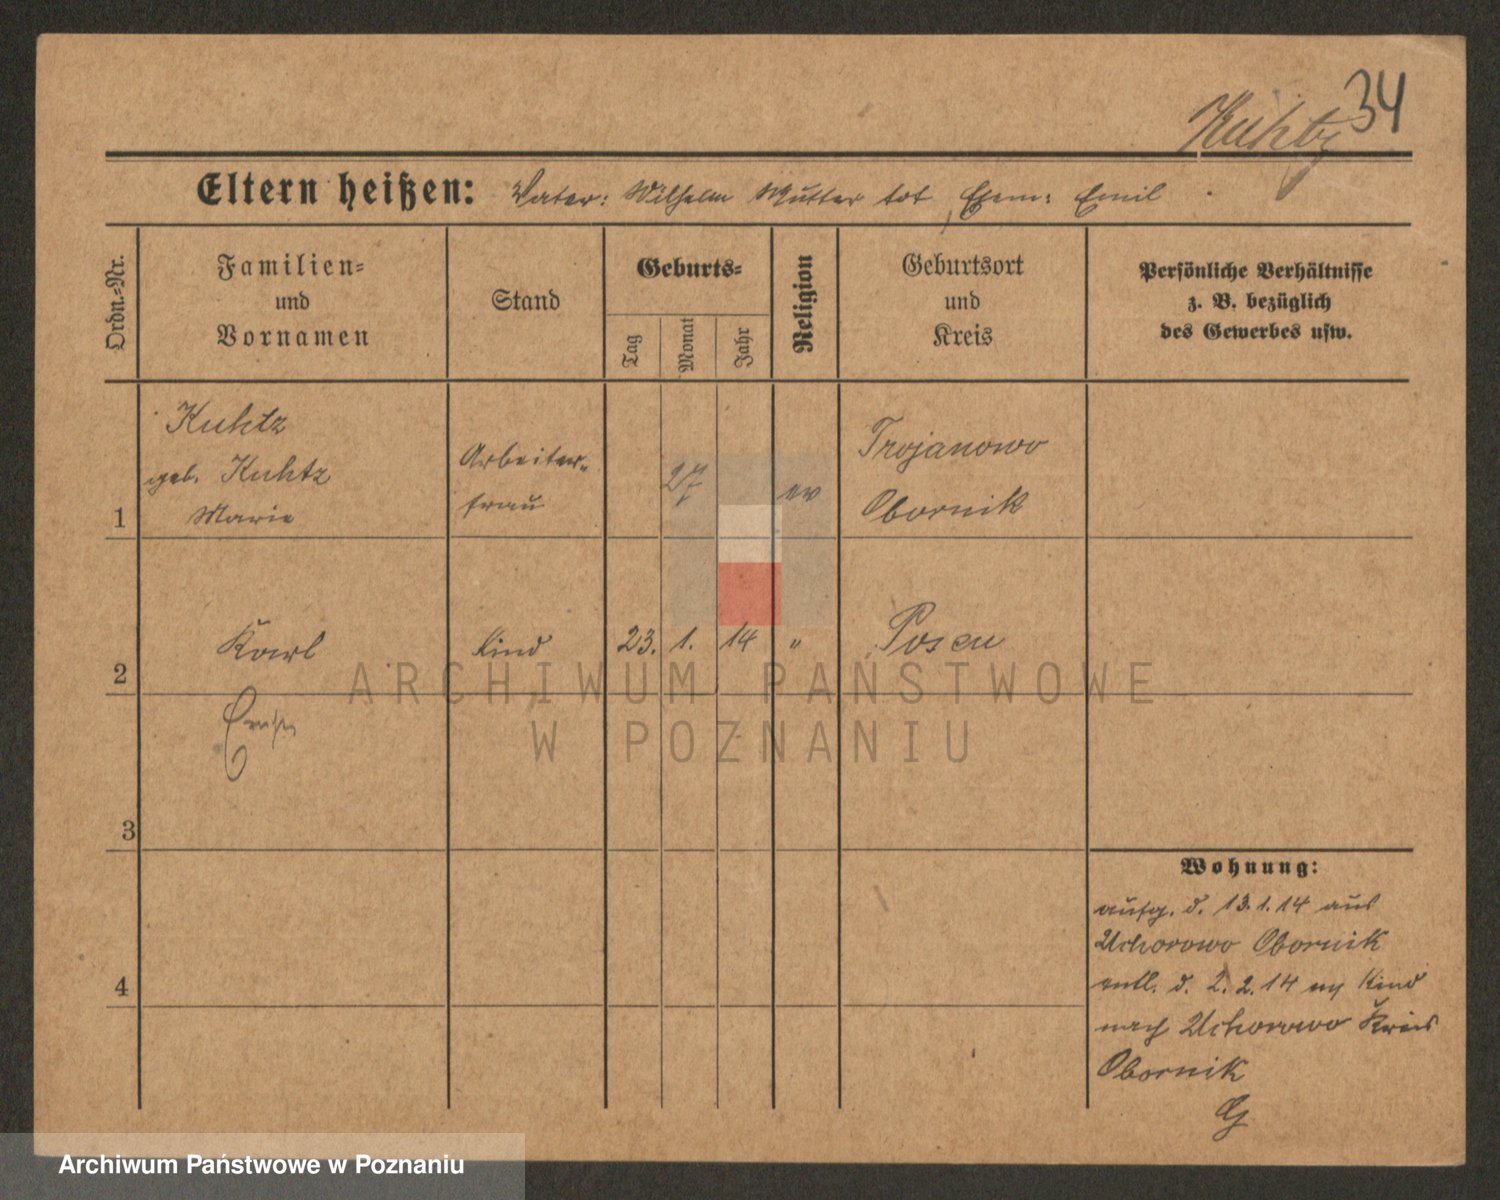 34
Kuhtz
Eltern heißen: Vater: Wilhelm Mutter tot, Ehem: Emil
Ordn.-Nr.
Familien- und Vornamen
Stand
Geburts-
Tag
Monat
Jahr
Religion
Geburtsort und Kreis
Persönliche Verhältnisse
z. B. bezüglich
des Gewerbes usw.
1
Kuhtz
geb. Kuhtz
Marie
Arbeiter-
frau
27
ev
Trojanowo
Obornik
2
Karl
Kind
23. 1. 14
"
Posen
3
4
Wohnung:
aufg. d. 13.1.14 aus
Uchorowo Obornik
entl. d. 2.2.14 m Kind
nach Uchorowo Kreis
Obornik
G
ARCHIWUM PAŃSTWOWE
W POZNANIU
Archiwum Państwowe w Poznaniu